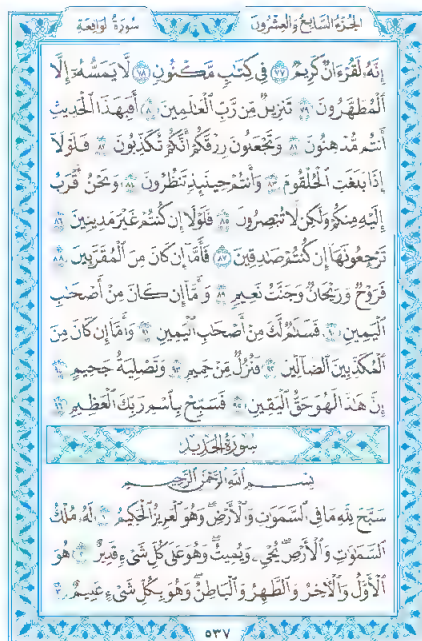 الجزء السابع والعشرون سورة الواقعة
إِنَّهُۥ لَقُرْءَانٌ كَرِيمٌ ٧٧ فِي كِتَٰبٍ مَّكْنُونٍ ٧٨ لَّا يَمَسُّهُۥٓ إِلَّا
ٱلْمُطَهَّرُونَ ٧٩ تَنزِيلٌ مِّن رَّبِّ ٱلْعَٰلَمِينَ ٨٠ أَفَبِهَٰذَا ٱلْحَدِيثِ
أَنتُم مُّدْهِنُونَ ٨١ وَتَجْعَلُونَ رِزْقَكُمْ أَنَّكُمْ تُكَذِّبُونَ ٨٢ فَلَوْلَآ
إِذَا بَلَغَتِ ٱلْحُلْقُومَ ٨٣ وَأَنتُمْ حِينَئِذٍ تَنظُرُونَ ٨٤ وَنَحْنُ أَقْرَبُ
إِلَيْهِ مِنكُمْ وَلَٰكِن لَّا تُبْصِرُونَ ٨٥ فَلَوْلَآ إِن كُنتُمْ غَيْرَ مَدِينِينَ ٨٦
تَرْجِعُونَهَآ إِن كُنتُمْ صَٰدِقِينَ ٨٧ فَأَمَّآ إِن كَانَ مِنَ ٱلْمُقَرَّبِينَ ٨٨
فَرَوْحٌ وَرَيْحَانٌ وَجَنَّتُ نَعِيمٍ ٨٩ وَأَمَّآ إِن كَانَ مِنْ أَصْحَٰبِ
ٱلْيَمِينِ ٩٠ فَسَلَٰمٌ لَّكَ مِنْ أَصْحَٰبِ ٱلْيَمِينِ ٩١ وَأَمَّآ إِن كَانَ مِنَ
ٱلْمُكَذِّبِينَ ٱلضَّآلِّينَ ٩٢ فَنُزُلٌ مِّنْ حَمِيمٍ ٩٣ وَتَصْلِيَةُ جَحِيمٍ ٩٤
إِنَّ هَٰذَا لَهُوَ حَقُّ ٱلْيَقِينِ ٩٥ فَسَبِّحْ بِٱسْمِ رَبِّكَ ٱلْعَظِيمِ ٩٦
سورة الحديد
بِسْمِ ٱللَّهِ ٱلرَّحْمَٰنِ ٱلرَّحِيمِ
سَبَّحَ لِلَّهِ مَا فِي ٱلسَّمَٰوَٰتِ وَٱلْأَرْضِ وَهُوَ ٱلْعَزِيزُ ٱلْحَكِيمُ ١ لَهُۥ مُلْكُ
ٱلسَّمَٰوَٰتِ وَٱلْأَرْضِ يُحْيِۦ وَيُمِيتُ وَهُوَ عَلَىٰ كُلِّ شَيْءٍ قَدِيرٌ ٢ هُوَ
ٱلْأَوَّلُ وَٱلْءَاخِرُ وَٱلظَّٰهِرُ وَٱلْبَاطِنُ وَهُوَ بِكُلِّ شَيْءٍ عَلِيمٌ ٣
٥٣٧